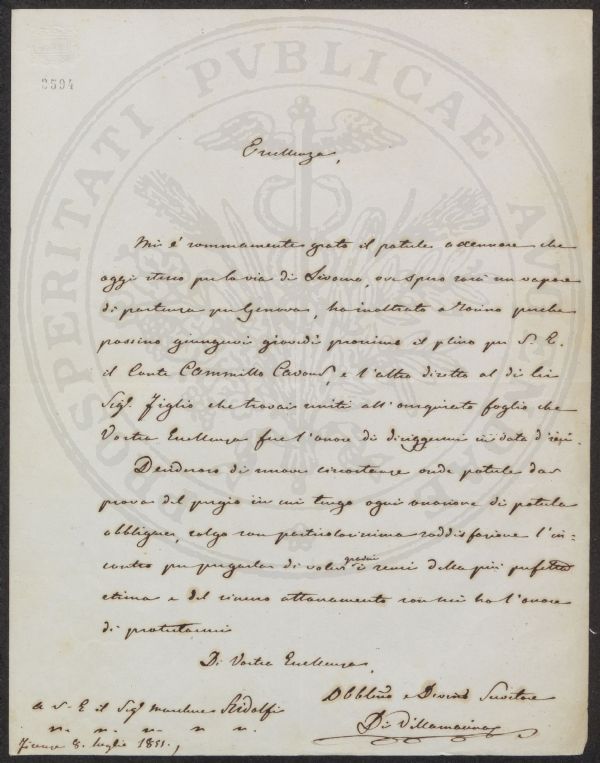 2594
PROSPERITATI PVBLICAE AVGENDAE
Eccellenza,
Mi é sommamente grato il poterle accennare che
oggi stesso per la via di Livorno, ove spero sarà un vapore
di partenza per Genova, ho inoltrato a Torino perche
possino giungervi giovedi prossimo il plico per S. E.
il Conte Cammillo Cavour, e l'altro diretto al di Lei
Sigr. Figlio che trovai uniti all' ossequiato foglio che
Vostra Eccellenza fece l'onore di diriggermi in data d'ieri.
Desideroso di nuove circostanze onde poterle dar
prova del pregio in cui tengo ogni occasione di poterla
obbligare, colgo con particolarissima soddisfazione l'in=
contro per pregarla di voler gradire i sensi della più perfetta
stima e del sincero attaccamento con cui ho l'onore
di protestarmi
Di Vostra Eccellenza,
Obblmo e Devmo Servitore
Di Villamarina
a S. E. il Sigr Marchese Ridolfi
Firenze 8. Luglio 1851.